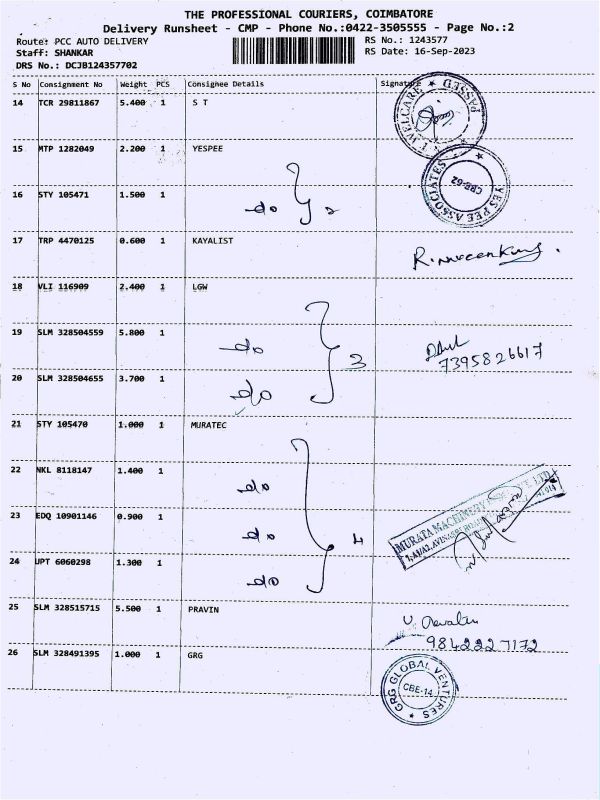 THE PROFESSIONAL COURIERS, COIMBATORE
Delivery Runsheet - CMP - Phone No.:0422-3505555 - Page No.:2
Route: PCC AUTO DELIVERY
RS No.: 1243577
Staff: SHANKAR
RS Date: 16-Sep-2023
DRS No.: DCJB124357702
S No Consignment No Weight PCS Consignee Details Signature
14 TCR 29811867 5.400 1 S T
WELCARE ★ PASSED
15 MTP 1282049 2.200 1 YESPEE
YES PEE ASSOCIATES ★ CBE-62
16 STY 105471 1.500 1 do 2
17 TRP 4470125 0.600 1 KAYALIST
18 VLI 116909 2.400 1 LGW
19 SLM 328504559 5.800 1 do 3
7395826617
20 SLM 328504655 3.700 1 do
21 STY 105470 1.000 1 MURATEC
22 NKL 8118147 1.400 1 do
23 EDQ 10901146 0.900 1 do 4
MURATA MACHINERY PVT. LTD
24 JPT 6060298 1.300 1 do
25 SLM 328515715 5.500 1 PRAVIN
9842227172
26 SLM 328491395 1.000 1 GRG
GRG GLOBAL VENTURES ★ CBE-14